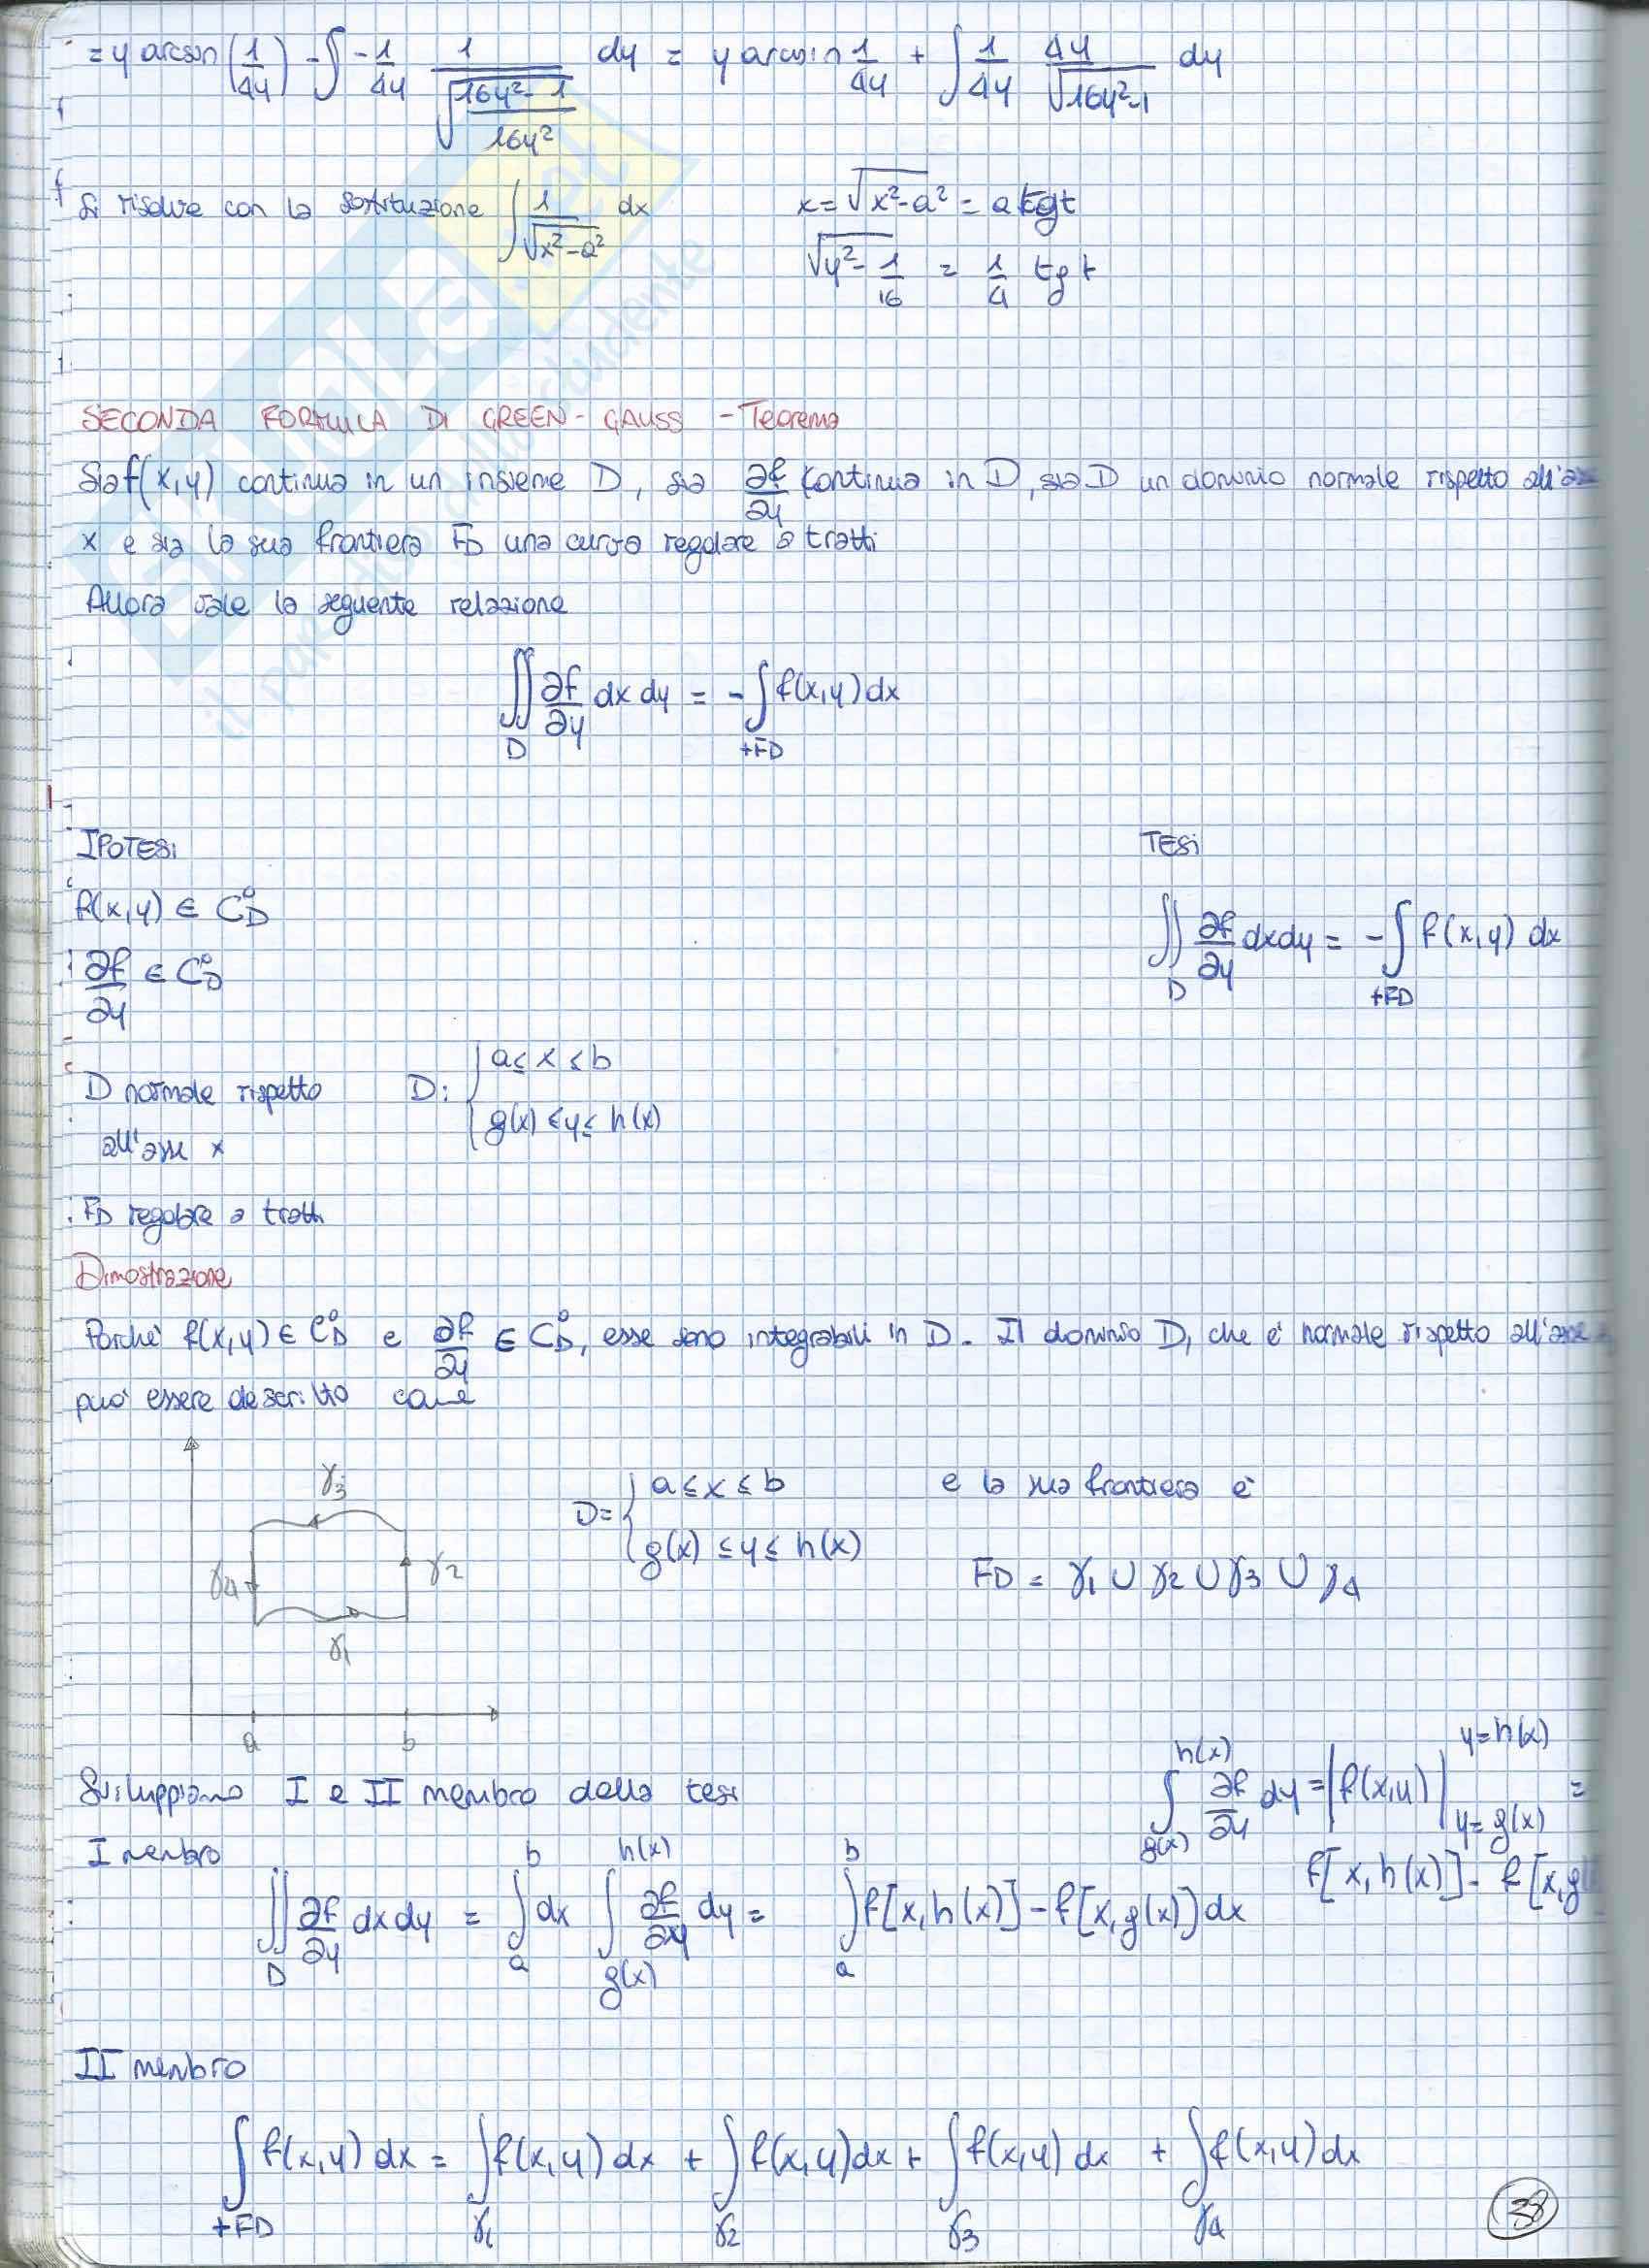 = y arcsin (1/4y) - ∫ -1/4y 1/√((16y²-1)/16y²) dy = y arcsin 1/4y + ∫ 1/4y 4y/√(16y²-1) dy
Si risolve con la sostituzione ∫ 1/√(x²-a²) dx x = √(x²-a²) = a tgt
√(y² - 1/16) = 1/4 tg t
SECONDA FORMULA DI GREEN-GAUSS - Teorema
Sia f(x,y) continua in un insieme D, sia ∂f/∂y continua in D, sia D un dominio normale rispetto all'
x e sia la sua frontiera FD una curva regolare a tratti
Allora vale la seguente relazione
∬_D ∂f/∂y dx dy = - ∫_+FD f(x,y) dx
IPOTESI TESI
f(x,y) ∈ C°_D
∂f/∂y ∈ C°_D
∬_D ∂f/∂y dxdy = - ∫_+FD f(x,y) dx
D normale rispetto all'asse x D: { a ≤ x ≤ b
g(x) ≤ y ≤ h(x)
FD regolare a tratti
Dimostrazione
Poiché f(x,y) ∈ C°_D e ∂f/∂y ∈ C°_D, esse sono integrabili in D. Il dominio D, che è normale rispetto all'asse
può essere descritto come
γ3
γ4 γ2
γ1
a b
D = { a ≤ x ≤ b e la sua frontiera è
g(x) ≤ y ≤ h(x)
FD = γ1 ∪ γ2 ∪ γ3 ∪ γ4
Sviluppiamo I e II membro della tesi
∫_g(x)^h(x) ∂f/∂y dy = |f(x,y)|_y=g(x)^y=h(x) =
f[x,h(x)] - f[x,g
I membro
∬_D ∂f/∂y dxdy = ∫_a^b dx ∫_g(x)^h(x) ∂f/∂y dy = ∫_a^b f[x,h(x)] - f[x,g(x)] dx
II membro
∫_+FD f(x,y) dx = ∫_γ1 f(x,y) dx + ∫_γ2 f(x,y) dx + ∫_γ3 f(x,y) dx + ∫_γ4 f(x,y) dx
38